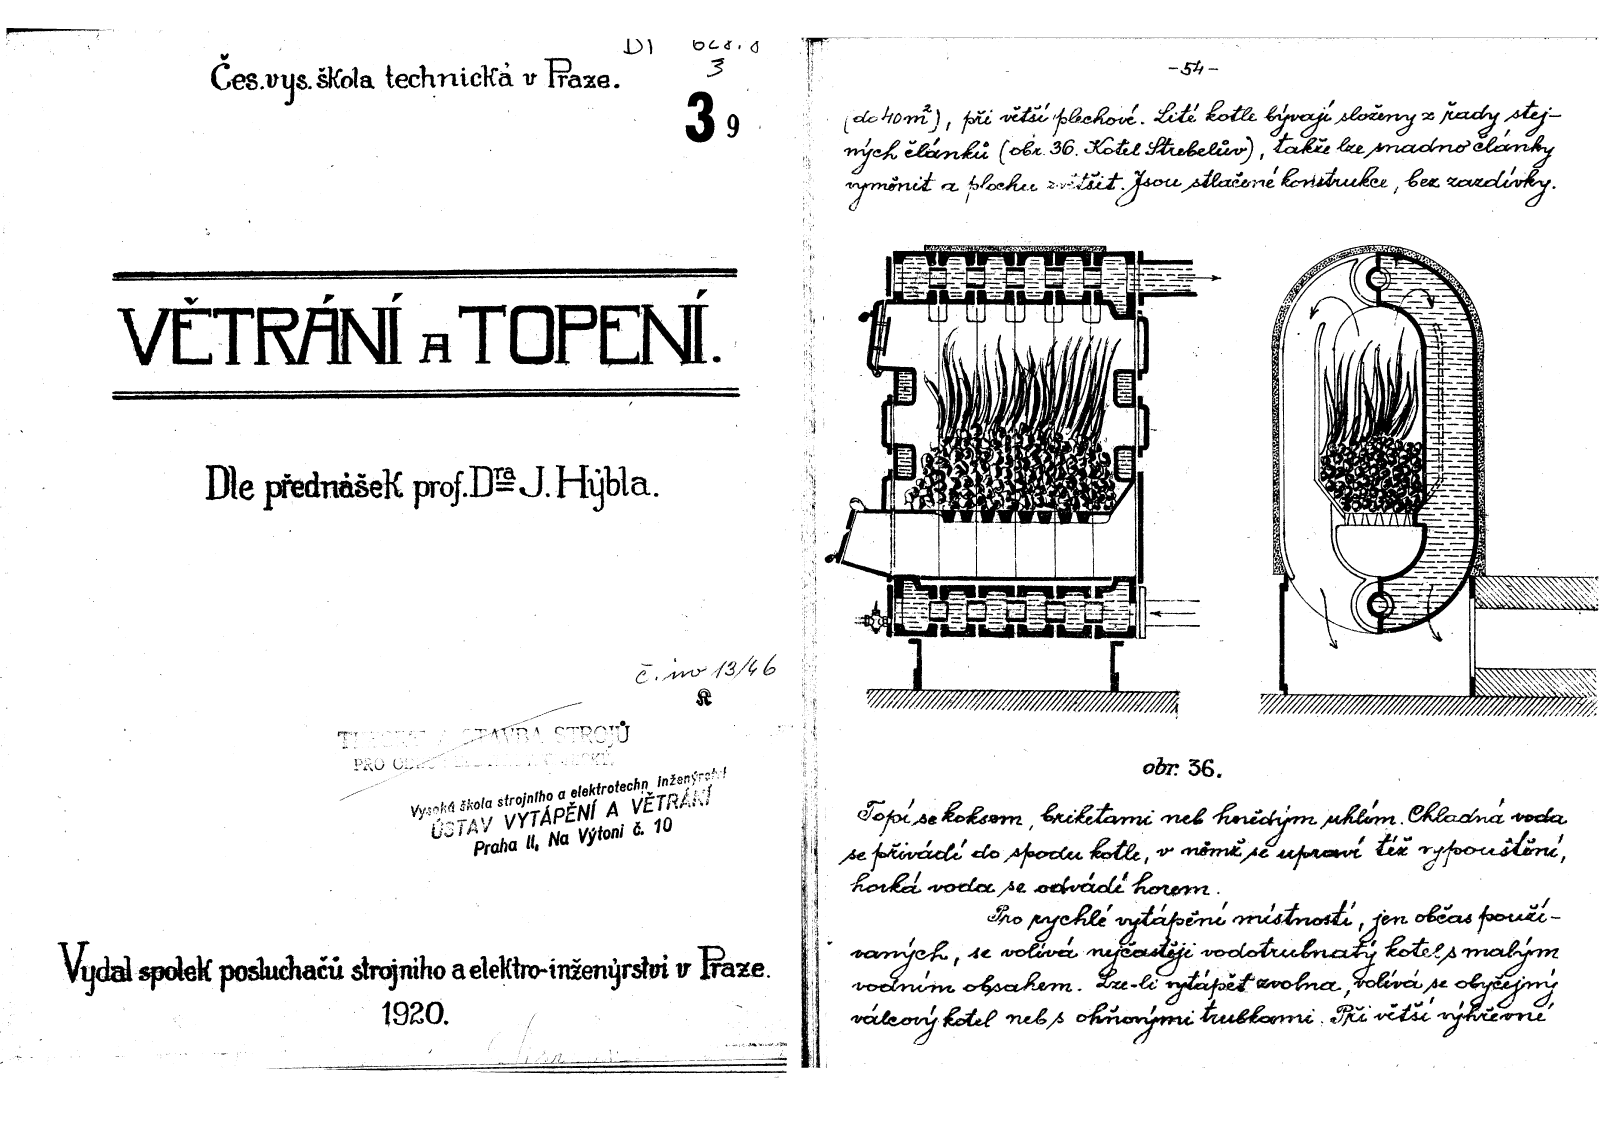 DI
3
Čes.vys.škola technická v Praze.
39
VĚTRÁNÍ A TOPENÍ.
Dle přednášek prof. Dra J. Hýbla.
č. inv 13/46
STAVBA STROJŮ
PRO
Vysoká škola strojního a elektrotechn. inženýrství
ÚSTAV VYTÁPĚNÍ A VĚTRÁNÍ
Praha II, Na Výtoni č. 10
Vydal spolek posluchačů strojního a elektro-inženýrství v Praze.
1920.
-54-
(do 40 m²), při větší plechové. Lité kotle bývají složeny z řady stej-
ných článků (obr. 36. Kotel Strebelův), takže lze snadno články
vyměnit a plochu zvětšit. Jsou stlačené konstrukce, bez zazdívky.
obr. 36.
Topí se koksem, briketami neb hnědým uhlím. Chladná voda
se přivádí do spodu kotle, v němž se upraví též vypouštění,
horká voda se odvádí horem.
Pro rychlé vytápění místností, jen občas použí-
vaných, se volívá nejčastěji vodotrubnatý kotel s malým
vodním obsahem. Lze-li vytápět zvolna, volívá se obyčejný
válcový kotel neb s ohňovými trubkami. Při větší výhřevné